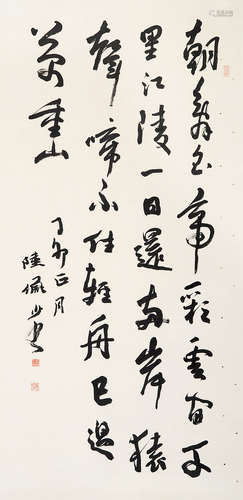 朝辭白帝彩雲間千
里江陵一日還兩岸猿
聲啼不住輕舟已過
萬重山
丁卯正月
陸儼少書